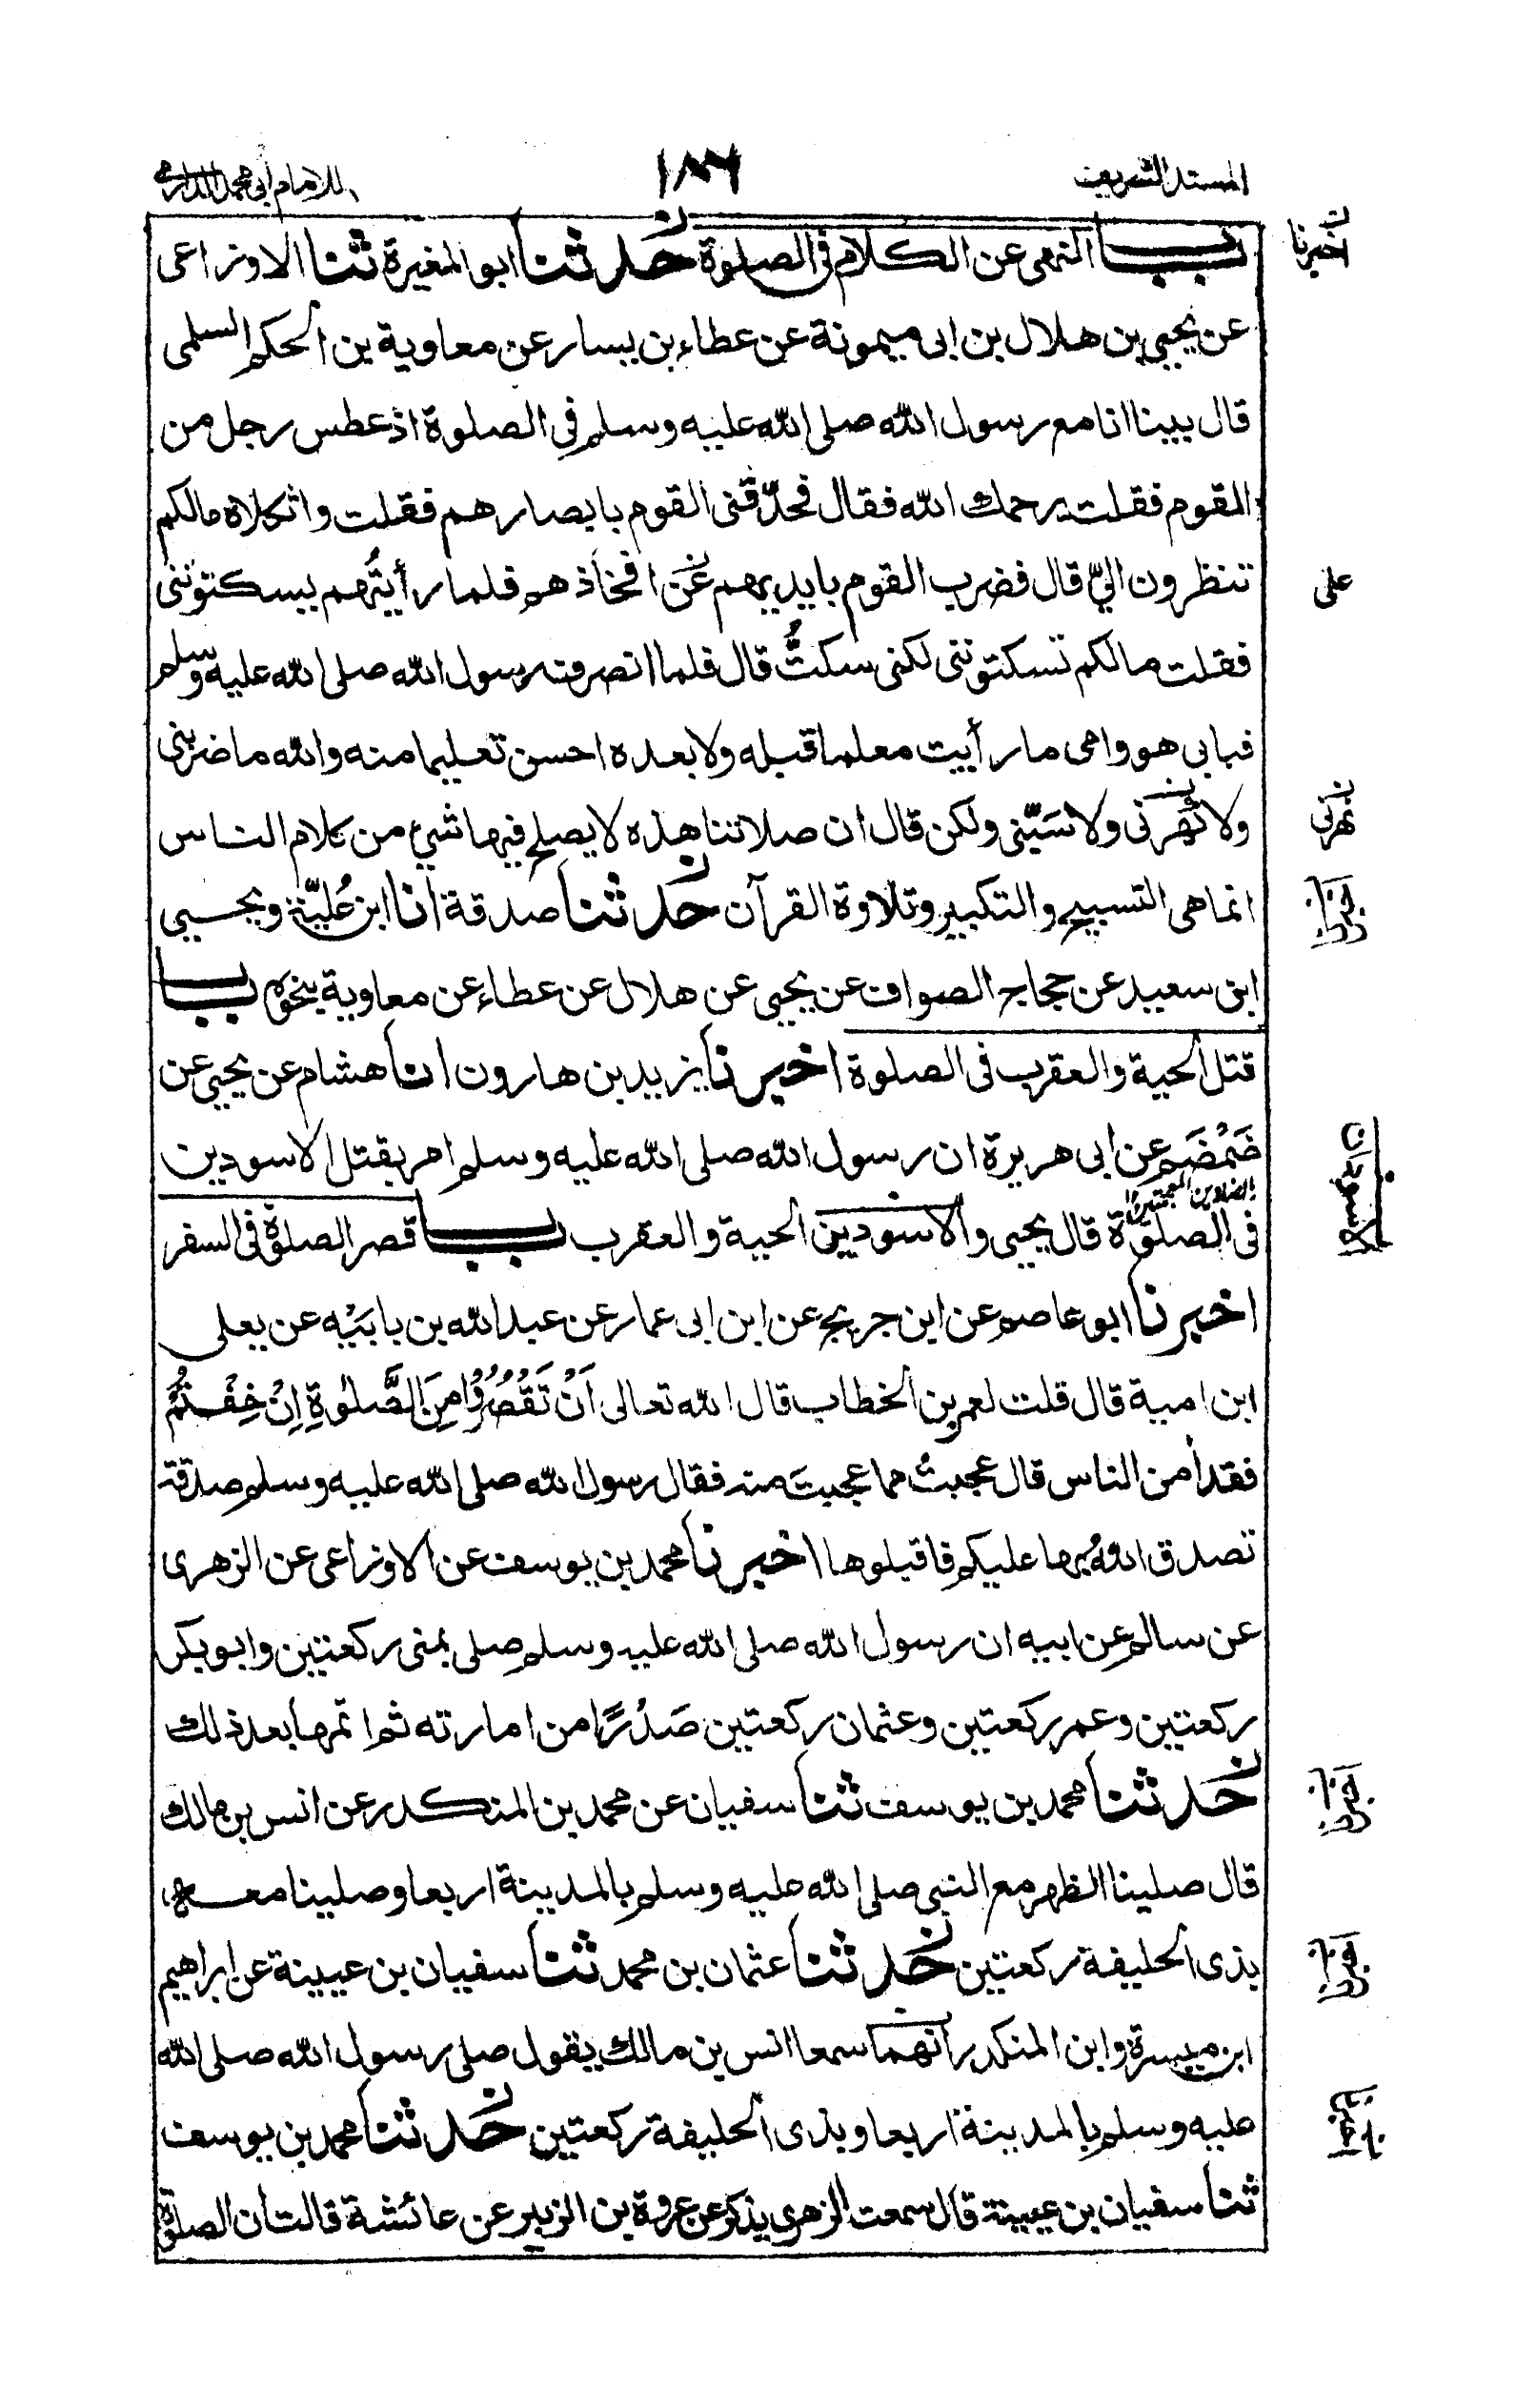 المسند الشريف
١٨٦
للامام ابى محمد الدارمى
باب النهى عن الكلام فى الصلوة حدثنا ابو المغيرة ثنا الاوزاعى
اخبرنا
عن يحيى بن هلال بن ابى ميمونة عن عطاء بن يسار عن معاوية بن الحكم السلمى
قال بينا انا مع رسول الله صلى الله عليه وسلم فى الصلوة اذ عطس رجل من
القوم فقلت يرحمك الله فقال فحدّقنى القوم بابصارهم فقلت واثكلاه مالكم
تنظرون الىّ قال فضرب القوم بايديهم عن افخاذهم فلما رأيتُهم يسكتوننى
على
فقلت مالكم تسكتوننى لكنى سكتُّ قال فلما انصرف رسول الله صلى الله عليه وسلم
فبابى هو وامى ما رأيت معلما قبله ولا بعده احسن تعليما منه والله ما ضربنى
ولا نهرنى ولا سَبّنى ولكن قال ان صلاتنا هذه لا يصلح فيها شىء من كلام الناس
نهرنى
انما هى التسبيح والتكبير وتلاوة القرآن حدثنا صدقة انا ابن عُليّة ويحيى
اخبرنا
ابن سعيد عن حجاج الصواف عن يحيى عن هلال عن عطاء عن معاوية بنحوه باب
قتل الحية والعقرب فى الصلوة اخبرنا يزيد بن هارون انا هشام عن يحيى عن
ضَمْضَم عن ابى هريرة ان رسول الله صلى الله عليه وسلم امر بقتل الاسودين
بالضادين المعجمتين
فى الصلوة قال يحيى والاسودين الحية والعقرب باب قصر الصلوة فى السفر
الاسودان
اخبرنا ابو عاصم عن ابن جريج عن ابن ابى عمار عن عبد الله بن بابَيْه عن يعلى
ابن امية قال قلت لعمر بن الخطاب قال الله تعالى اَنْ تَقْصُرُوْا مِنَ الصَّلٰوةِ اِنْ خِفْتُمْ
فقد أمن الناس قال عجبتُ مما عجبتَ منه فقال رسول الله صلى الله عليه وسلم صدقة
تصدق اللهُ بها عليكم فاقبلوها اخبرنا محمد بن يوسف عن الاوزاعى عن الزهرى
عن سالم عن ابيه ان رسول الله صلى الله عليه وسلم صلى بمنى ركعتين وابو بكر
ركعتين وعمر ركعتين وعثمان ركعتين صَدْرًا من امارته ثم اتمها بعد ذلك
حدثنا محمد بن يوسف ثنا سفيان عن محمد بن المنكدر عن انس بن مالك
اخبرنا
قال صلينا الظهر مع النبى صلى الله عليه وسلم بالمدينة اربعا وصلينا معه
بذى الحليفة ركعتين حدثنا عثمان بن محمد ثنا سفيان بن عيينة عن ابراهيم
اخبرنا
ابن ميسرة وابن المنكدر أنهما سمعا انس بن مالك يقول صلى رسول الله صلى الله
عليه وسلم بالمدينة اربعا وبذى الحليفة ركعتين حدثنا محمد بن يوسف
اخبرنا
ثنا سفيان بن عيينة قال سمعت الزهرى يذكر عن عروة بن الزبير عن عائشة قالت أن الصلوة